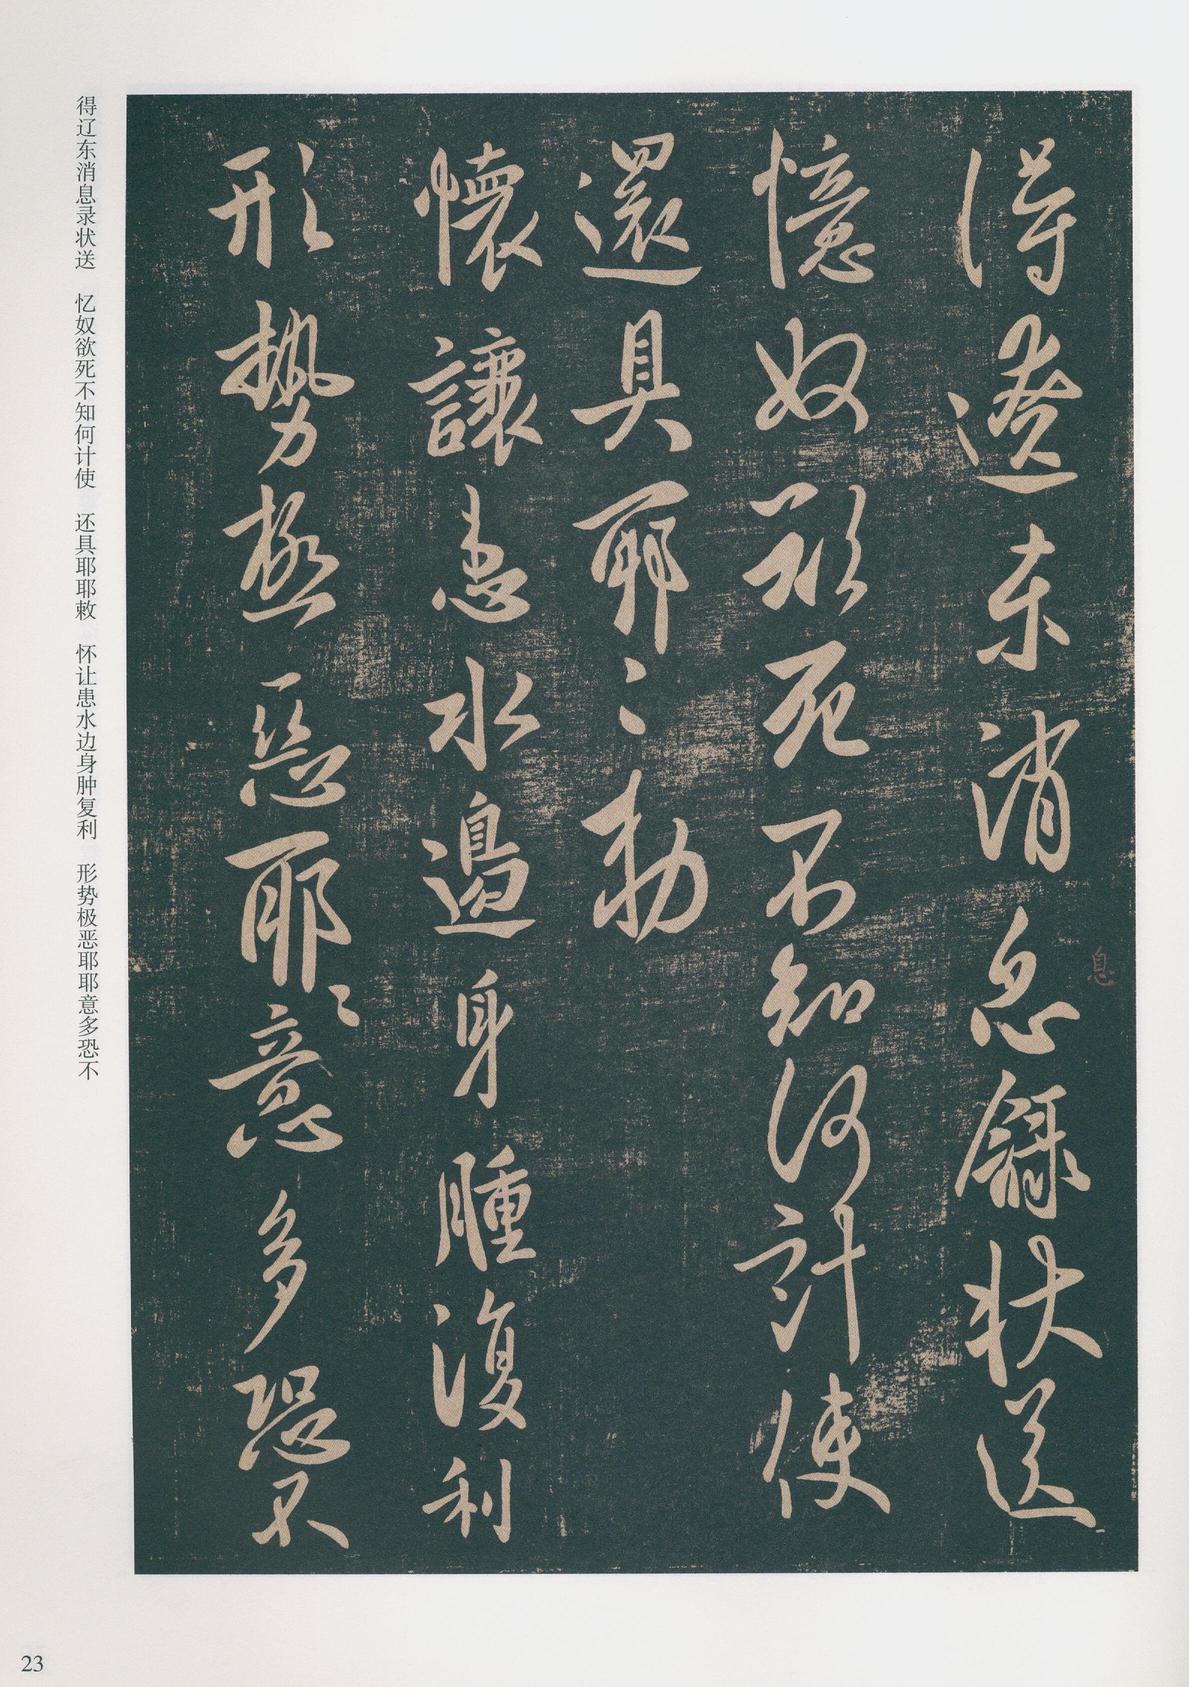 得遼東消息録狀送
憶奴欲死不知何計使
還具耶〻勅
懷讓患水邊身腫復利
形勢極惡耶〻意多恐不
息
得辽东消息录状送 忆奴欲死不知何计使 还具耶耶敕 怀让患水边身肿复利 形势极恶耶耶意多恐不
23